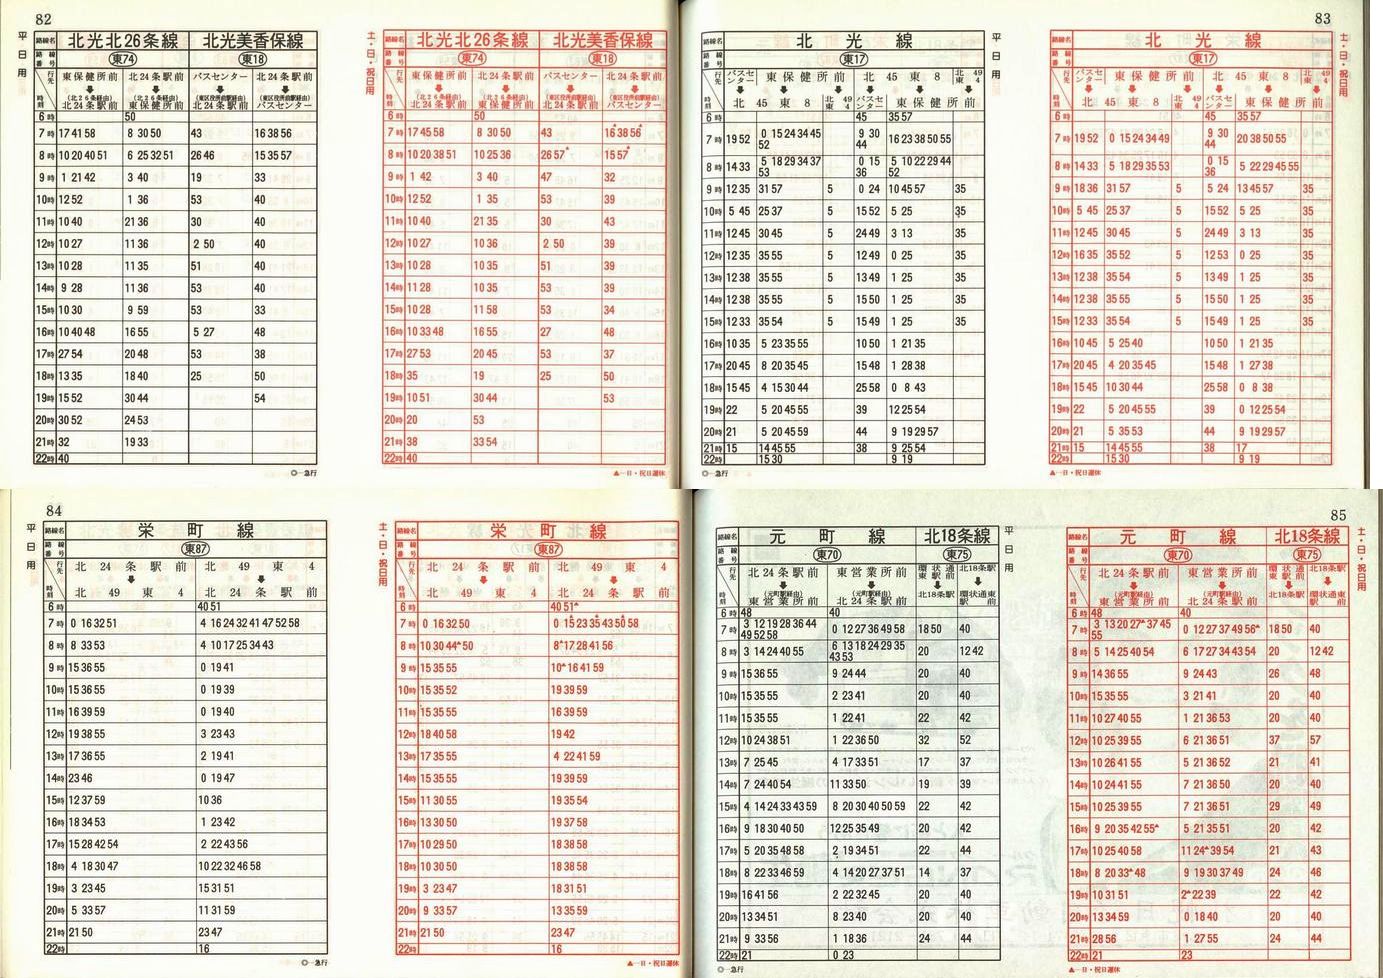 82
平日用
路線名 北光北26条線 北光美香保線
路線番号 東74 東18
行先 時刻 東保健所前 北24条駅前 バスセンター 北24条駅前
(北26条経由) (北26条経由) (東区役所前駅経由) (東区役所前駅経由)
北24条駅前 東保健所前 北24条駅前 バスセンター
6時 50
7時 17 41 58 8 30 50 43 16 38 56
8時 10 20 40 51 6 25 32 51 26 46 15 35 57
9時 1 21 42 3 40 19 33
10時 12 52 1 36 53 40
11時 10 40 21 36 30 40
12時 10 27 11 36 2 50 40
13時 10 28 11 35 51 40
14時 9 28 11 36 53 40
15時 10 30 9 59 53 33
16時 10 40 48 16 55 5 27 48
17時 27 54 20 48 53 38
18時 13 35 18 40 25 50
19時 15 52 30 44 54
20時 30 52 24 53
21時 32 19 33
22時 40
◎―急行
土・日・祝日用
路線名 北光北26条線 北光美香保線
路線番号 東74 東18
行先 時刻 東保健所前 北24条駅前 バスセンター 北24条駅前
(北26条経由) (北26条経由) (東区役所前駅経由) (東区役所前駅経由)
北24条駅前 東保健所前 北24条駅前 バスセンター
6時 50
7時 17 45 58 8 30 50 43 16▲ 38 56▲
8時 10 20 38 51 10 25 36 26 57▲ 15 57▲
9時 1 42 3 40 47 32
10時 12 52 1 35 53 39
11時 10 40 21 35 30 43
12時 10 27 10 36 2 50 39
13時 10 28 10 35 51 39
14時 11 28 10 35 53 39
15時 10 28 11 58 53 34
16時 10 33 48 16 55 27 48
17時 27 53 20 45 53 37
18時 35 19 25 50
19時 10 51 30 44 53
20時 20 53
21時 38 33 54
22時 40
▲―日・祝日運休
83
平日用
路線名 北光線
路線番号 東17
行先 時刻 バスセンター 東保健所前 北45東8 北49東4
北45東8 北49東4 バスセンター 東保健所前
6時 45 35 57
7時 19 52 0 15 24 34 45 52 9 30 44 16 23 38 50 55
8時 14 33 5 18 29 34 37 53 0 15 36 5 10 22 29 44 52
9時 12 35 31 57 5 0 24 10 45 57 35
10時 5 45 25 37 5 15 52 5 25 35
11時 12 45 30 45 5 24 49 3 13 35
12時 12 35 35 55 5 12 49 0 25 35
13時 12 38 35 55 5 13 49 1 25 35
14時 12 38 35 55 5 15 50 1 25 35
15時 12 33 35 54 5 15 49 1 25 35
16時 10 35 5 23 35 55 10 50 1 21 35
17時 20 45 8 20 35 45 15 48 1 28 38
18時 15 45 4 15 30 44 25 58 0 8 43
19時 22 5 20 45 55 39 12 25 54
20時 21 5 20 45 59 44 9 19 29 57
21時 15 14 45 55 38 9 25 54
22時 15 30 9 19
◎―急行
土・日・祝日用
路線名 北光線
路線番号 東17
行先 時刻 バスセンター 東保健所前 北45東8 北49東4
北45東8 北49東4 バスセンター 東保健所前
6時 45 35 57
7時 19 52 0 15 24 34 49 9 30 44 20 38 50 55
8時 14 33 5 18 29 35 53 0 15 36 5 22 29 45 55
9時 18 36 31 57 5 5 24 13 45 57 35
10時 5 45 25 37 5 15 52 5 25 35
11時 12 45 30 45 5 24 49 3 13 35
12時 16 35 35 52 5 12 53 0 25 35
13時 12 38 35 54 5 13 49 1 25 35
14時 12 38 35 55 5 15 50 1 25 35
15時 12 33 35 54 5 15 49 1 25 35
16時 10 45 5 25 40 10 50 1 21 35
17時 20 45 4 20 35 45 15 48 1 27 38
18時 15 45 10 30 44 25 58 0 8 38
19時 22 5 20 45 55 39 0 12 25 54
20時 21 5 35 53 44 9 19 29 57
21時 15 14 45 55 38 17
22時 15 30 9 19
▲―日・祝日運休
84
平日用
路線名 栄町線
路線番号 東87
行先 時刻 北24条駅前 北49東4
北49東4 北24条駅前
6時 40 51
7時 0 16 32 51 4 16 24 32 41 47 52 58
8時 8 33 53 4 10 17 25 34 43
9時 15 36 55 0 19 41
10時 15 36 55 0 19 39
11時 16 39 59 0 19 40
12時 19 38 55 3 23 43
13時 17 36 55 2 19 41
14時 23 46 0 19 47
15時 12 37 59 10 36
16時 18 34 53 1 23 42
17時 15 28 42 54 2 22 43 56
18時 4 18 30 47 10 22 32 46 58
19時 3 23 45 15 31 51
20時 5 33 57 11 31 59
21時 21 50 23 47
22時 16
◎―急行
土・日・祝日用
路線名 栄町線
路線番号 東87
行先 時刻 北24条駅前 北49東4
北49東4 北24条駅前
6時 40 51▲
7時 0 16 32 50 0 15 23 35 43 50 58
8時 10 30 44▲ 50 8▲ 17 28 41 56
9時 15 35 55 10▲ 16 41 59
10時 15 35 52 19 39 59
11時 15 35 55 16 39 59
12時 18 40 58 19 42
13時 17 35 55 4 22 41 59
14時 15 35 55 19 39 59
15時 11 30 55 19 35 54
16時 13 30 50 19 37 58
17時 10 29 50 18 38 58
18時 10 30 50 18 38 58
19時 3 23 47 18 31 51
20時 9 33 57 13 35 59
21時 21 50 23 47
22時 16
▲―日・祝日運休
85
平日用
路線名 元町線 北18条線
路線番号 東70 東75
行先 時刻 北24条駅前 東営業所前 環状通東駅前 北18条駅
(元町駅経由) (元町駅経由)
東営業所前 北24条駅前 北18条駅 環状通東駅前
6時 48 40
7時 3 12 19 28 36 44 49 52 58 0 12 27 36 49 58 18 50 40
8時 3 14 24 40 55 6 13 18 24 29 35 43 53 20 12 42
9時 15 36 55 9 24 44 20 40
10時 15 35 55 2 23 41 20 40
11時 15 35 55 1 22 41 22 42
12時 10 24 38 51 1 22 36 50 32 52
13時 7 25 45 4 17 33 51 17 37
14時 7 24 40 54 11 33 50 19 39
15時 4 14 24 33 43 59 8 20 30 40 50 59 22 42
16時 9 18 30 40 50 12 25 35 49 20 42
17時 5 20 35 48 58 2 19 34 51 22 44
18時 8 22 33 46 59 4 14 20 27 37 51 14 37
19時 16 41 56 2 22 32 45 20 40
20時 13 34 51 8 23 40 20 40
21時 9 33 56 1 18 36 24 44
22時 21 0 23
◎―急行
土・日・祝日用
路線名 元町線 北18条線
路線番号 東70 東75
行先 時刻 北24条駅前 東営業所前 環状通東駅前 北18条駅
(元町駅経由) (元町駅経由)
東営業所前 北24条駅前 北18条駅 環状通東駅前
6時 48 40
7時 3 13 20 27▲ 37 45 55 0 12 27 37 49 56▲ 18 50 40
8時 5 14 25 40 54 6 17 27 34 43 54 20 12 42
9時 14 36 55 9 24 43 26 48
10時 15 35 55 3 21 41 20 40
11時 10 27 40 55 1 21 36 53 20 40
12時 10 25 39 55 6 21 36 51 37 57
13時 10 26 41 55 5 21 36 52 21 41
14時 10 24 41 55 7 21 36 50 20 40
15時 10 25 39 55 7 21 36 51 29 49
16時 9 20 35 42 55▲ 5 21 35 51 20 42
17時 10 25 40 58 11 24▲ 39 54 21 43
18時 8 20 33▲ 48 9 19 30 37 49 24 46
19時 10 31 51 2▲ 22 39 22 42
20時 13 34 59 0 18 40 20 40
21時 28 56 1 27 55 24 44
22時 21 23
▲―日・祝日運休